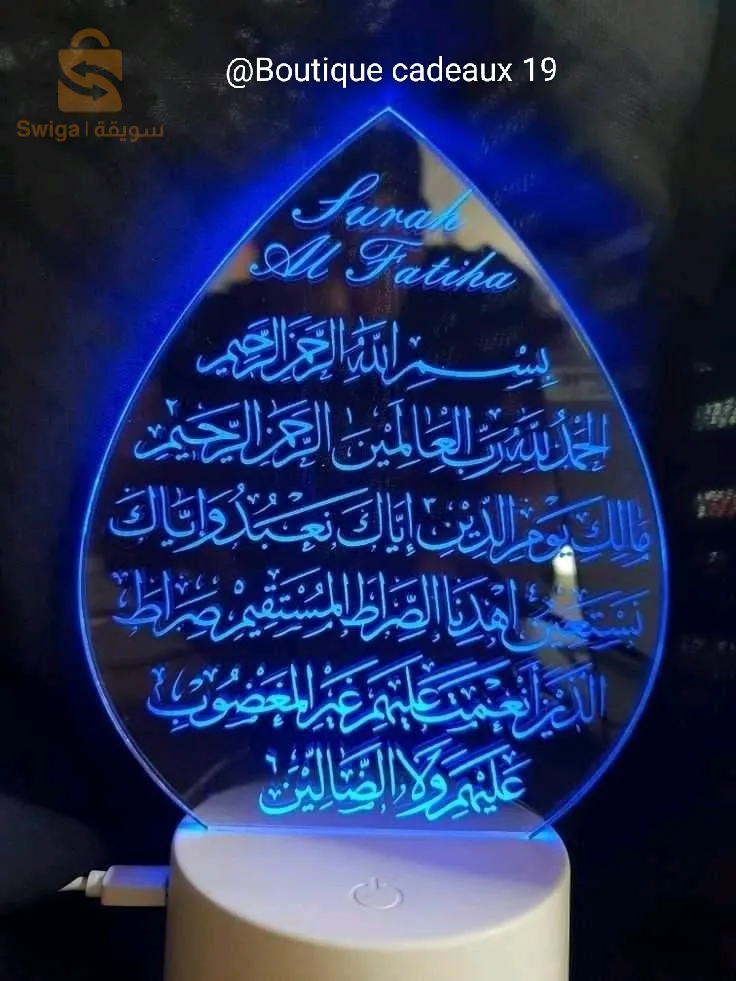 @Boutique cadeaux 19
Swiga | سويقة
Surah
Al Fatiha
بِسْمِ اللَّهِ الرَّحْمَٰنِ الرَّحِيمِ
الْحَمْدُ لِلَّهِ رَبِّ الْعَالَمِينَ الرَّحْمَٰنِ الرَّحِيمِ
مَالِكِ يَوْمِ الدِّينِ إِيَّاكَ نَعْبُدُ وَإِيَّاكَ
نَسْتَعِينُ اهْدِنَا الصِّرَاطَ الْمُسْتَقِيمَ صِرَاطَ
الَّذِينَ أَنْعَمْتَ عَلَيْهِمْ غَيْرِ الْمَغْضُوبِ
عَلَيْهِمْ وَلَا الضَّالِّينَ